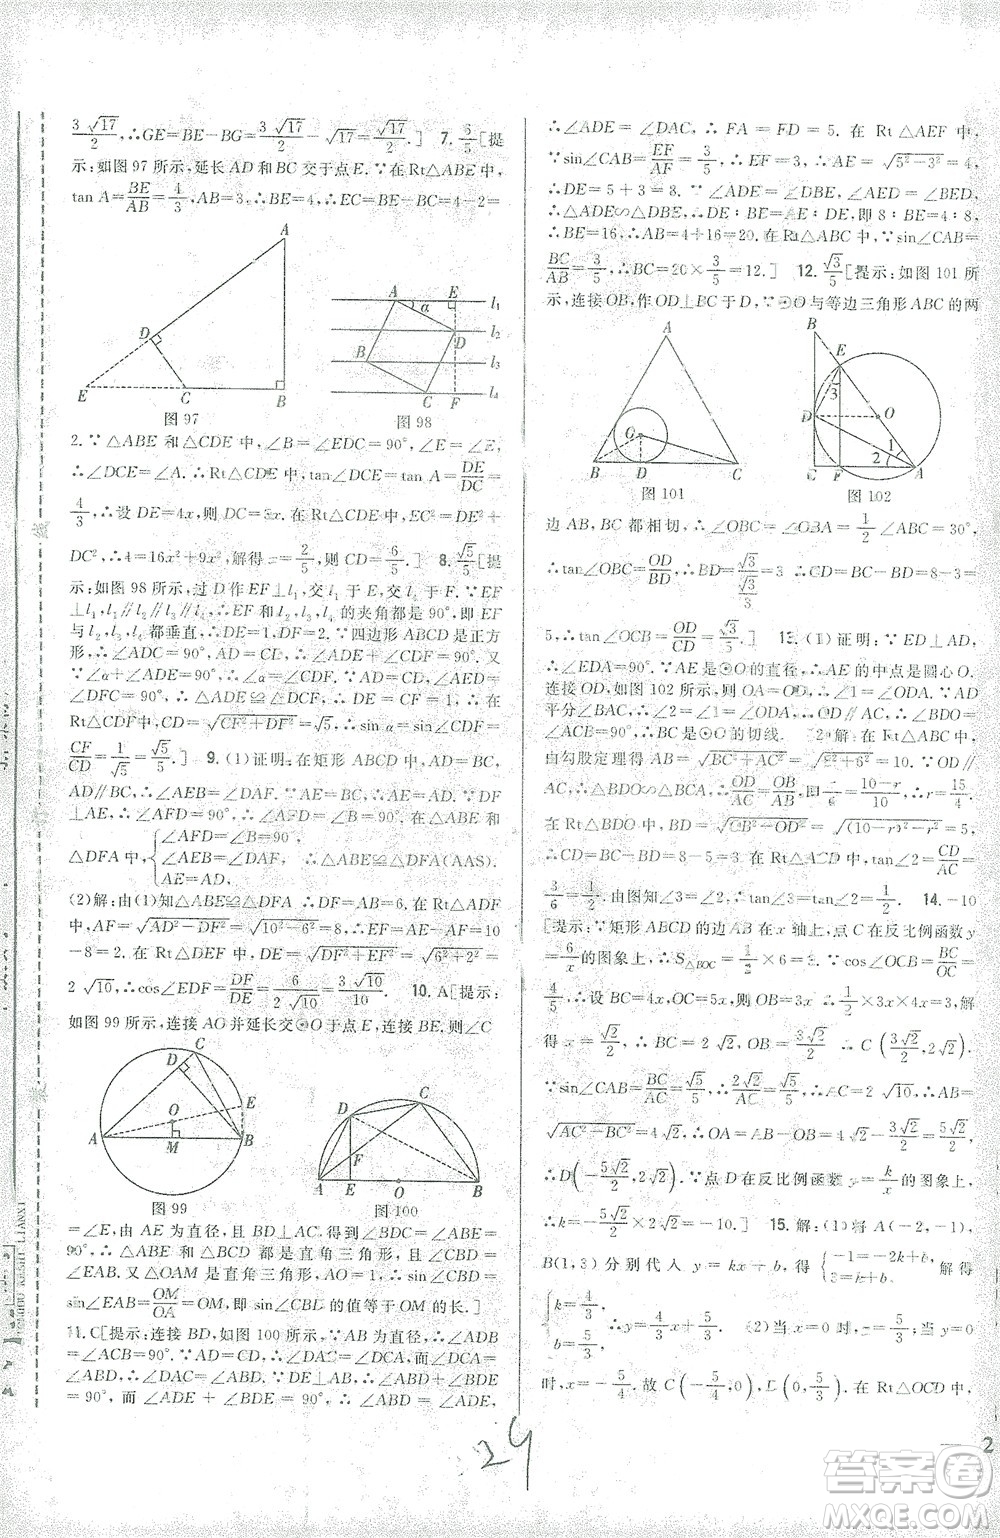 3√17/2,∴GE=BE-BG=3√17/2-√17=√17/2.] 7.6/5[提
示:如图97所示,延长AD和BC交于点E.∵在Rt△ABE中,
tan A=BE/AB=4/3,AB=3,∴BE=4,∴EC=BE-BC=4-2=
A
D
E
C
B
图97
A
E
α
l₁
l₂
D
B
l₃
C
F
l₄
图98
2.∵△ABE和△CDE中,∠B=∠EDC=90°,∠E=∠E,
∴∠DCE=∠A.∴Rt△CDE中,tan∠DCE=tanA=DE/DC=
4/3,∴设DE=4x,则DC=3x.在Rt△CDE中,EC²=DE²+
DC²,∴4=16x²+9x²,解得x=2/5,则CD=6/5.] 8.√5/5[提
示:如图98所示,过D作EF⊥l₁,交l₁于E,交l₄于F.∵EF⊥
l₁,l₁∥l₂∥l₃∥l₄,∴EF和l₂,l₃,l₄的夹角都是90°,即EF
与l₂,l₃,l₄都垂直,∴DE=1,DF=2.∵四边形ABCD是正方
形,∴∠ADC=90°,AD=CD,∴∠ADE+∠CDF=90°.又
∵∠α+∠ADE=90°,∴∠α=∠CDF.∵AD=CD,∠AED=
∠DFC=90°,∴△ADE≌△DCF,∴DE=CF=1,∴在
Rt△CDF中,CD=√CF²+DF²=√5,∴sin α=sin∠CDF=
CF/CD=1/√5=√5/5.] 9.(1)证明:在矩形ABCD中,BC=AD,
AD∥BC,∠B=90°,∴∠DAF=∠AEB.∵DF⊥AE,AE=BC,
∴∠AFD=90°,AE=AD.在△ABE和
△DFA中,{∠AFD=∠B=90°,
∠AEB=∠DAF,
AE=AD,
∴△ABE≌△DFA(AAS).
(2)解:由(1)知△ABE≌△DFA.∴DF=AB=6.在Rt△ADF
中,AF=√AD²-DF²=√10²-6²=8,∴EF=AE-AF=10
-8=2.在Rt△DFE中,DE=√DF²+EF²=√6²+2²=
2√10,∴cos∠EDF=DF/DE=6/2√10=3√10/10. 10.A[提示:
如图99所示,连接AO并延长交⊙O于点E,连接BE.则∠C
C
D
E
O
A
M
B
图99
C
D
F
A
E
O
B
图100
=∠E,由AE为直径,且BD⊥AC,得到∠BDC=∠ABE=
90°,∴△ABE和△BCD都是直角三角形,∴∠CBD=
∠EAB.又△OAM是直角三角形,AO=1,∴sin∠CBD=
sin∠EAB=OM/OA=OM,即sin∠CBD的值等于OM的长.]
11.C[提示:连接BD,如图100所示:∵AB为直径,∴∠ADB
=∠ACB=90°.∵AD=CD,∴∠DAC=∠DCA.而∠DCA=
∠ABD,∴∠DAC=∠ABD.∵DE⊥AB,∴∠ABD+∠BDE
=90°,而∠ADE+∠BDE=90°,∴∠ABD=∠ADE,
∴∠ADE=∠DAC,∴FA=FD=5.在Rt△AEF中,
∵sin∠CAB=EF/AF=3/5,∴EF=3,∴AE=√5²-3²=4,
∴DE=5+3=8.∵∠ADE=∠DBE,∠AED=∠BED,
∴△ADE∽△DBE,∴DE:BE=AE:DE,即8:BE=4:8,
∴BE=16,∴AB=4+16=20.在Rt△ABC中,∵sin∠CAB=
BC/AB=3/5,∴BC=20×3/5=12.] 12.√3/5[提示:如图101所
示,连接OB,作OD⊥BC于D,∵⊙O与等边三角形ABC的两
A
O
B
D
C
图101
B
E
3
D
O
1
2
C
F
A
图102
边AB,BC都相切,∴∠OBC=∠OBA=1/2∠ABC=30°,
∴tan∠OBC=OD/BD,∴BD=OD/tan30°=√3/(√3/3)=3,∴CD=BC-BD=8-3=
5,∴tan∠OCB=OD/CD=√3/5.] 13.(1)证明:∵ED⊥AD,
∴∠EDA=90°.∵AE是⊙O的直径,∴AE的中点是圆心O.
连接OD,如图102所示,则OA=OD,∴∠1=∠ODA.∵AD
平分∠BAC,∴∠2=∠1=∠ODA,∴OD∥AC,∴∠BDO=
∠ACB=90°,∴BC是⊙O的切线. (2)解:在Rt△ABC中,
由勾股定理得AB=√BC²+AC²=√8²+6²=10.∵OD∥
AC,∴△BDO∽△BCA,∴OD/AC=OB/AB,即r/6=(10-r)/10,∴r=15/4.
在Rt△BDO中,BD=√OB²-OD²=√(10-r)²-r²=5,
∴CD=BC-BD=8-5=3.在Rt△ACD中,tan∠2=CD/AC=
3/6=1/2.由图知∠3=∠2,∴tan∠3=tan∠2=1/2. 14.-10
[提示:∵矩形ABCD的边AB在x轴上,点C在反比例函数y
=6/x的图象上,∴S△BOC=1/2×6=3.∵cos∠OCB=BC/OC=
4/5,∴设BC=4x,则OC=5x,OB=3x,∴1/2×3x×4x=3,解
得x=√2/2,∴BC=2√2,OB=3√2/2,∴C(3√2/2,2√2).
∵sin∠CAB=BC/AC=√5/5,∴AC=2√10,∴AB=
√AC²-BC²=4√2,∴OA=AB-OB=4√2-3√2/2=5√2/2,
∴D(-5√2/2,2√2).∵点D在反比例函数y=k/x的图象上,
∴k=-5√2/2×2√2=-10.] 15.解:(1)将A(-2,-1),
B(1,3)分别代入y=kx+b,得{-1=-2k+b,
3=k+b,解得
{k=4/3,
b=5/3.∴y=4/3x+5/3. (2)当x=0时,y=5/3;当y=0
时,x=-5/4.故C(-5/4,0),D(0,5/3).在Rt△OCD中,
29
— 2
答案圈
MXQE.COM